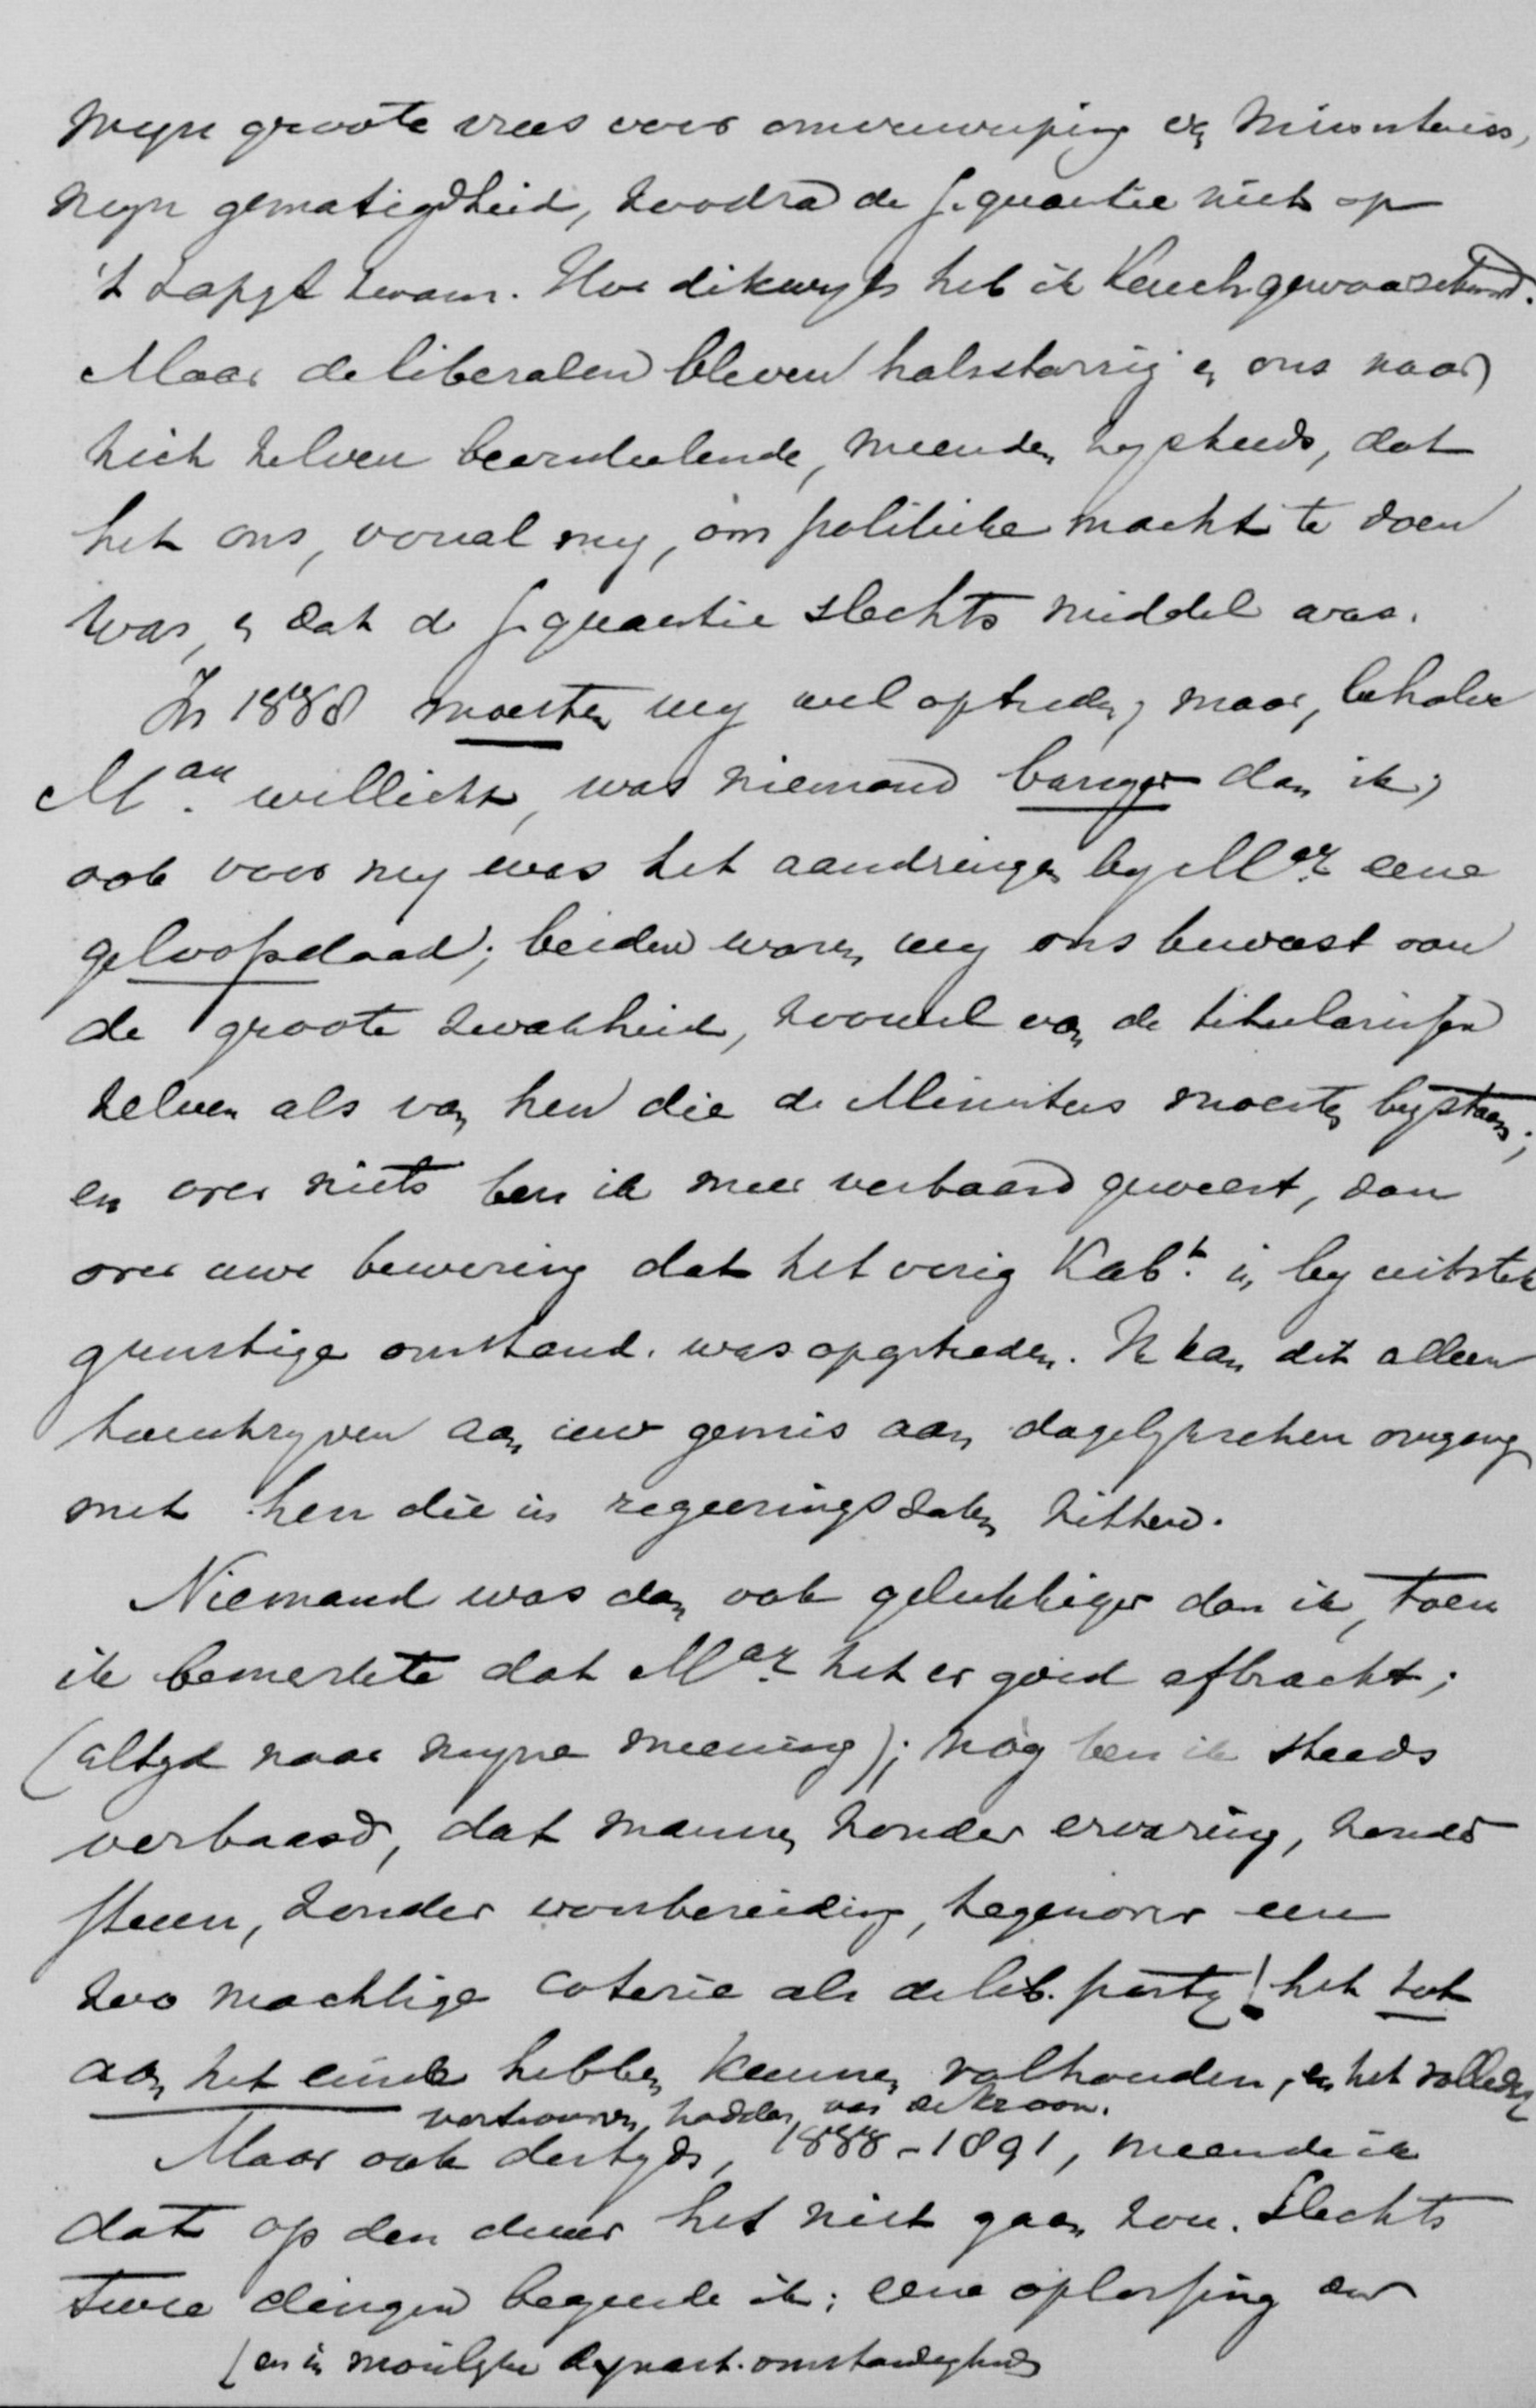 mijn groote vrees voor omverwerping v. Ministeries,
mijn gematigdheid, zoodra de s.quaestie niet op
't tapijt kwam. Hoe dikwijls heb ik Keuch. gewaarschuwd.
Maar de liberalen bleven halsstarrig en ons naar
zich zelven beoordeelende, meenden zij steeds, dat
het ons, vooral mij, om politieke macht te doen
was, en dat de s.quaestie slechts middel was.
In 1888 moesten wij wel optreden, maar, behalve
M.ay wellicht, was niemand banger dan ik;
ook voor mij was het aandringen bij M.ay eene
geloofsdaad; beiden waren wij ons bewust van
de groote zwakheid, zoowel van de titularissen
zelven als van hen die de Ministers moesten bijstaan;
en over niets ben ik meer verbaasd geweest, dan
over uwe bewering dat het vorig Kab.t in bij uitstek
gunstige omstand. was opgetreden. Ik kan dit alleen
toeschrijven aan uw gemis aan dagelijkschen omgang
met hen die in regeeringszaken zitten.
Niemand was dan ook gelukkiger dan ik, toen
ik bemerkte dat M.ay het er goed afbracht;
(altijd naar mijne meening); nòg ben ik steeds
verbaasd, dat mannen zonder ervaring, zonder
steun, zonder voorbereiding, tegenover een
zoo machtige coterie als de lib. partij! het tot
aan het einde hebben kunnen volhouden, en het volledig
vertrouwen hadden van de Kroon.
Maar ook destijds, 1888-1891, meende ik
dat op den duur het niet gaan zou. Slechts
twee dingen begeerde ik; eene oplossing der
(en in moeilijke dynast. omstandigheden